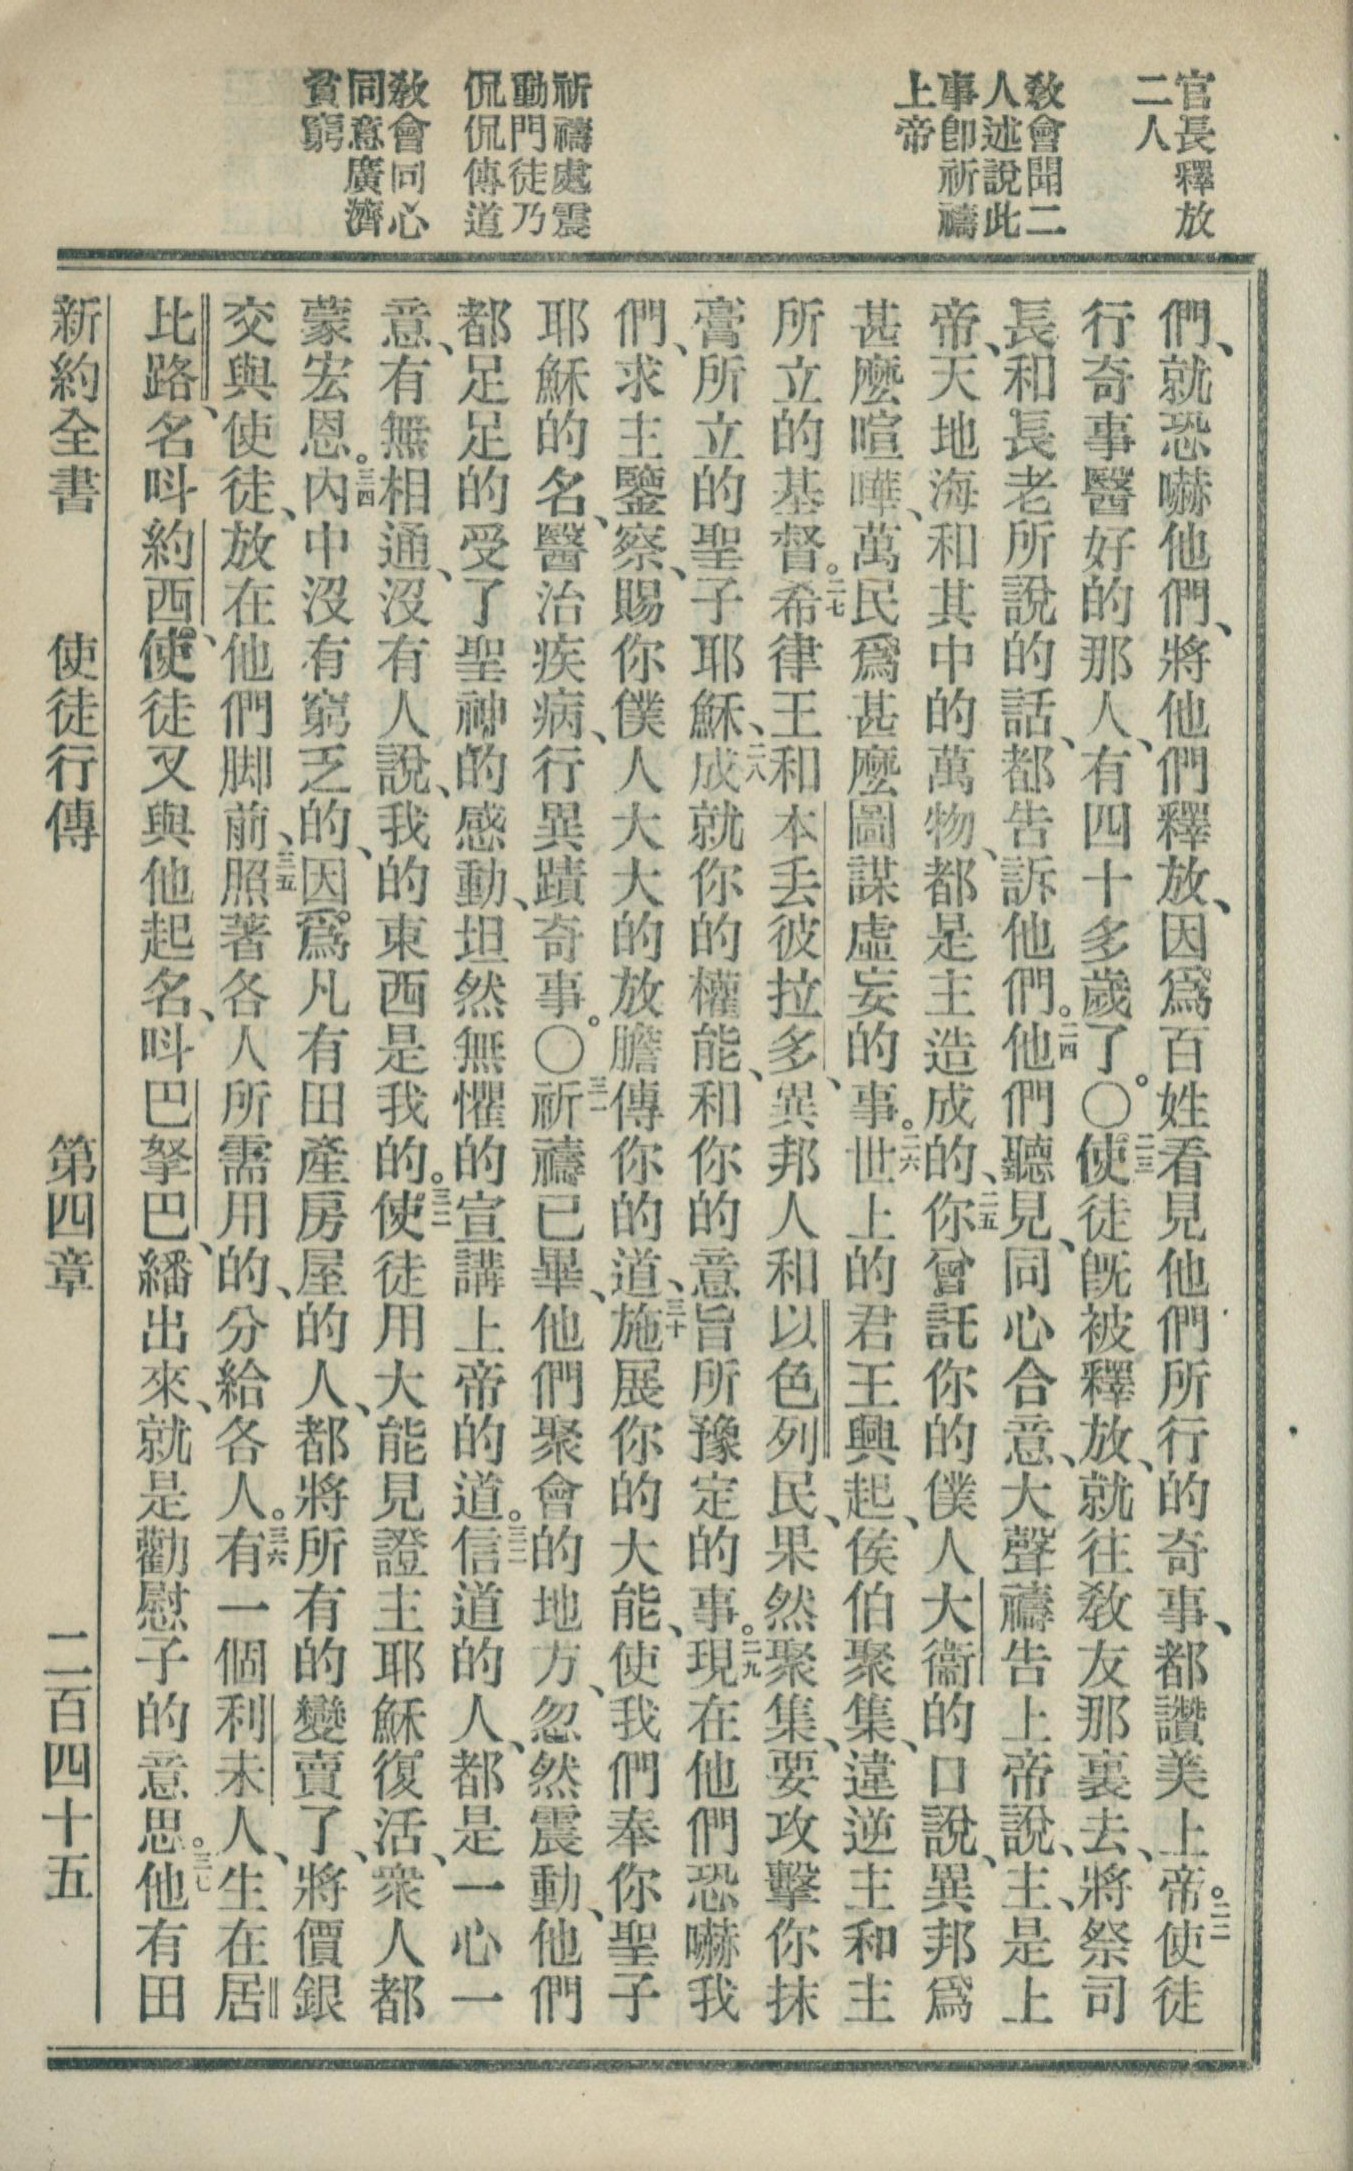 官長釋放
二人
敎會聞二
人述說此
事卽祈禱
上帝
祈禱處震
動門徒乃
侃侃傳道
敎會同心
同意廣濟
貧窮
們、就恐嚇他們、將他們釋放、因爲百姓看見他們所行的奇事、都讚美上帝。二二使徒
行奇事醫好的那人、有四十多歲了。〇二三使徒旣被釋放、就往敎友那裏去、將祭司
長和長老所說的話、都告訴他們。二四他們聽見、同心合意、大聲禱告上帝說、主、是上
帝、天地海和其中的萬物、都是主造成的、二五你曾託你的僕人大衞的口說、異邦爲
甚麼喧嘩、萬民爲甚麼圖謀虛妄的事。二六世上的君王興起、侯伯聚集、違逆主和主
所立的基督。二七希律王和本丟彼拉多、異邦人和以色列民、果然聚集、要攻擊你抹
膏所立的聖子耶穌、二八成就你的權能、和你的意旨所豫定的事。二九現在他們恐嚇我
們、求主鑒察、賜你僕人大大的放膽傳你的道、三十施展你的大能、使我們奉你聖子
耶穌的名、醫治疾病、行異蹟奇事。〇三一祈禱已畢、他們聚會的地方、忽然震動、他們
都足足的受了聖神的感動、坦然無懼的宣講上帝的道。三二信道的人、都是一心一
意、有無相通、沒有人說、我的東西是我的。三三使徒用大能見證主耶穌復活、衆人都
蒙宏恩。三四內中沒有窮乏的、因爲凡有田產房屋的人、都將所有的變賣了、將價銀
交與使徒、放在他們脚前、三五照著各人所需用的、分給各人。三六有一個利未人、生在居
比路、名呌約西、使徒又與他起名、呌巴拏巴、繙出來、就是勸慰子的意思。三七他有田
新約全書　使徒行傳　第四章　二百四十五